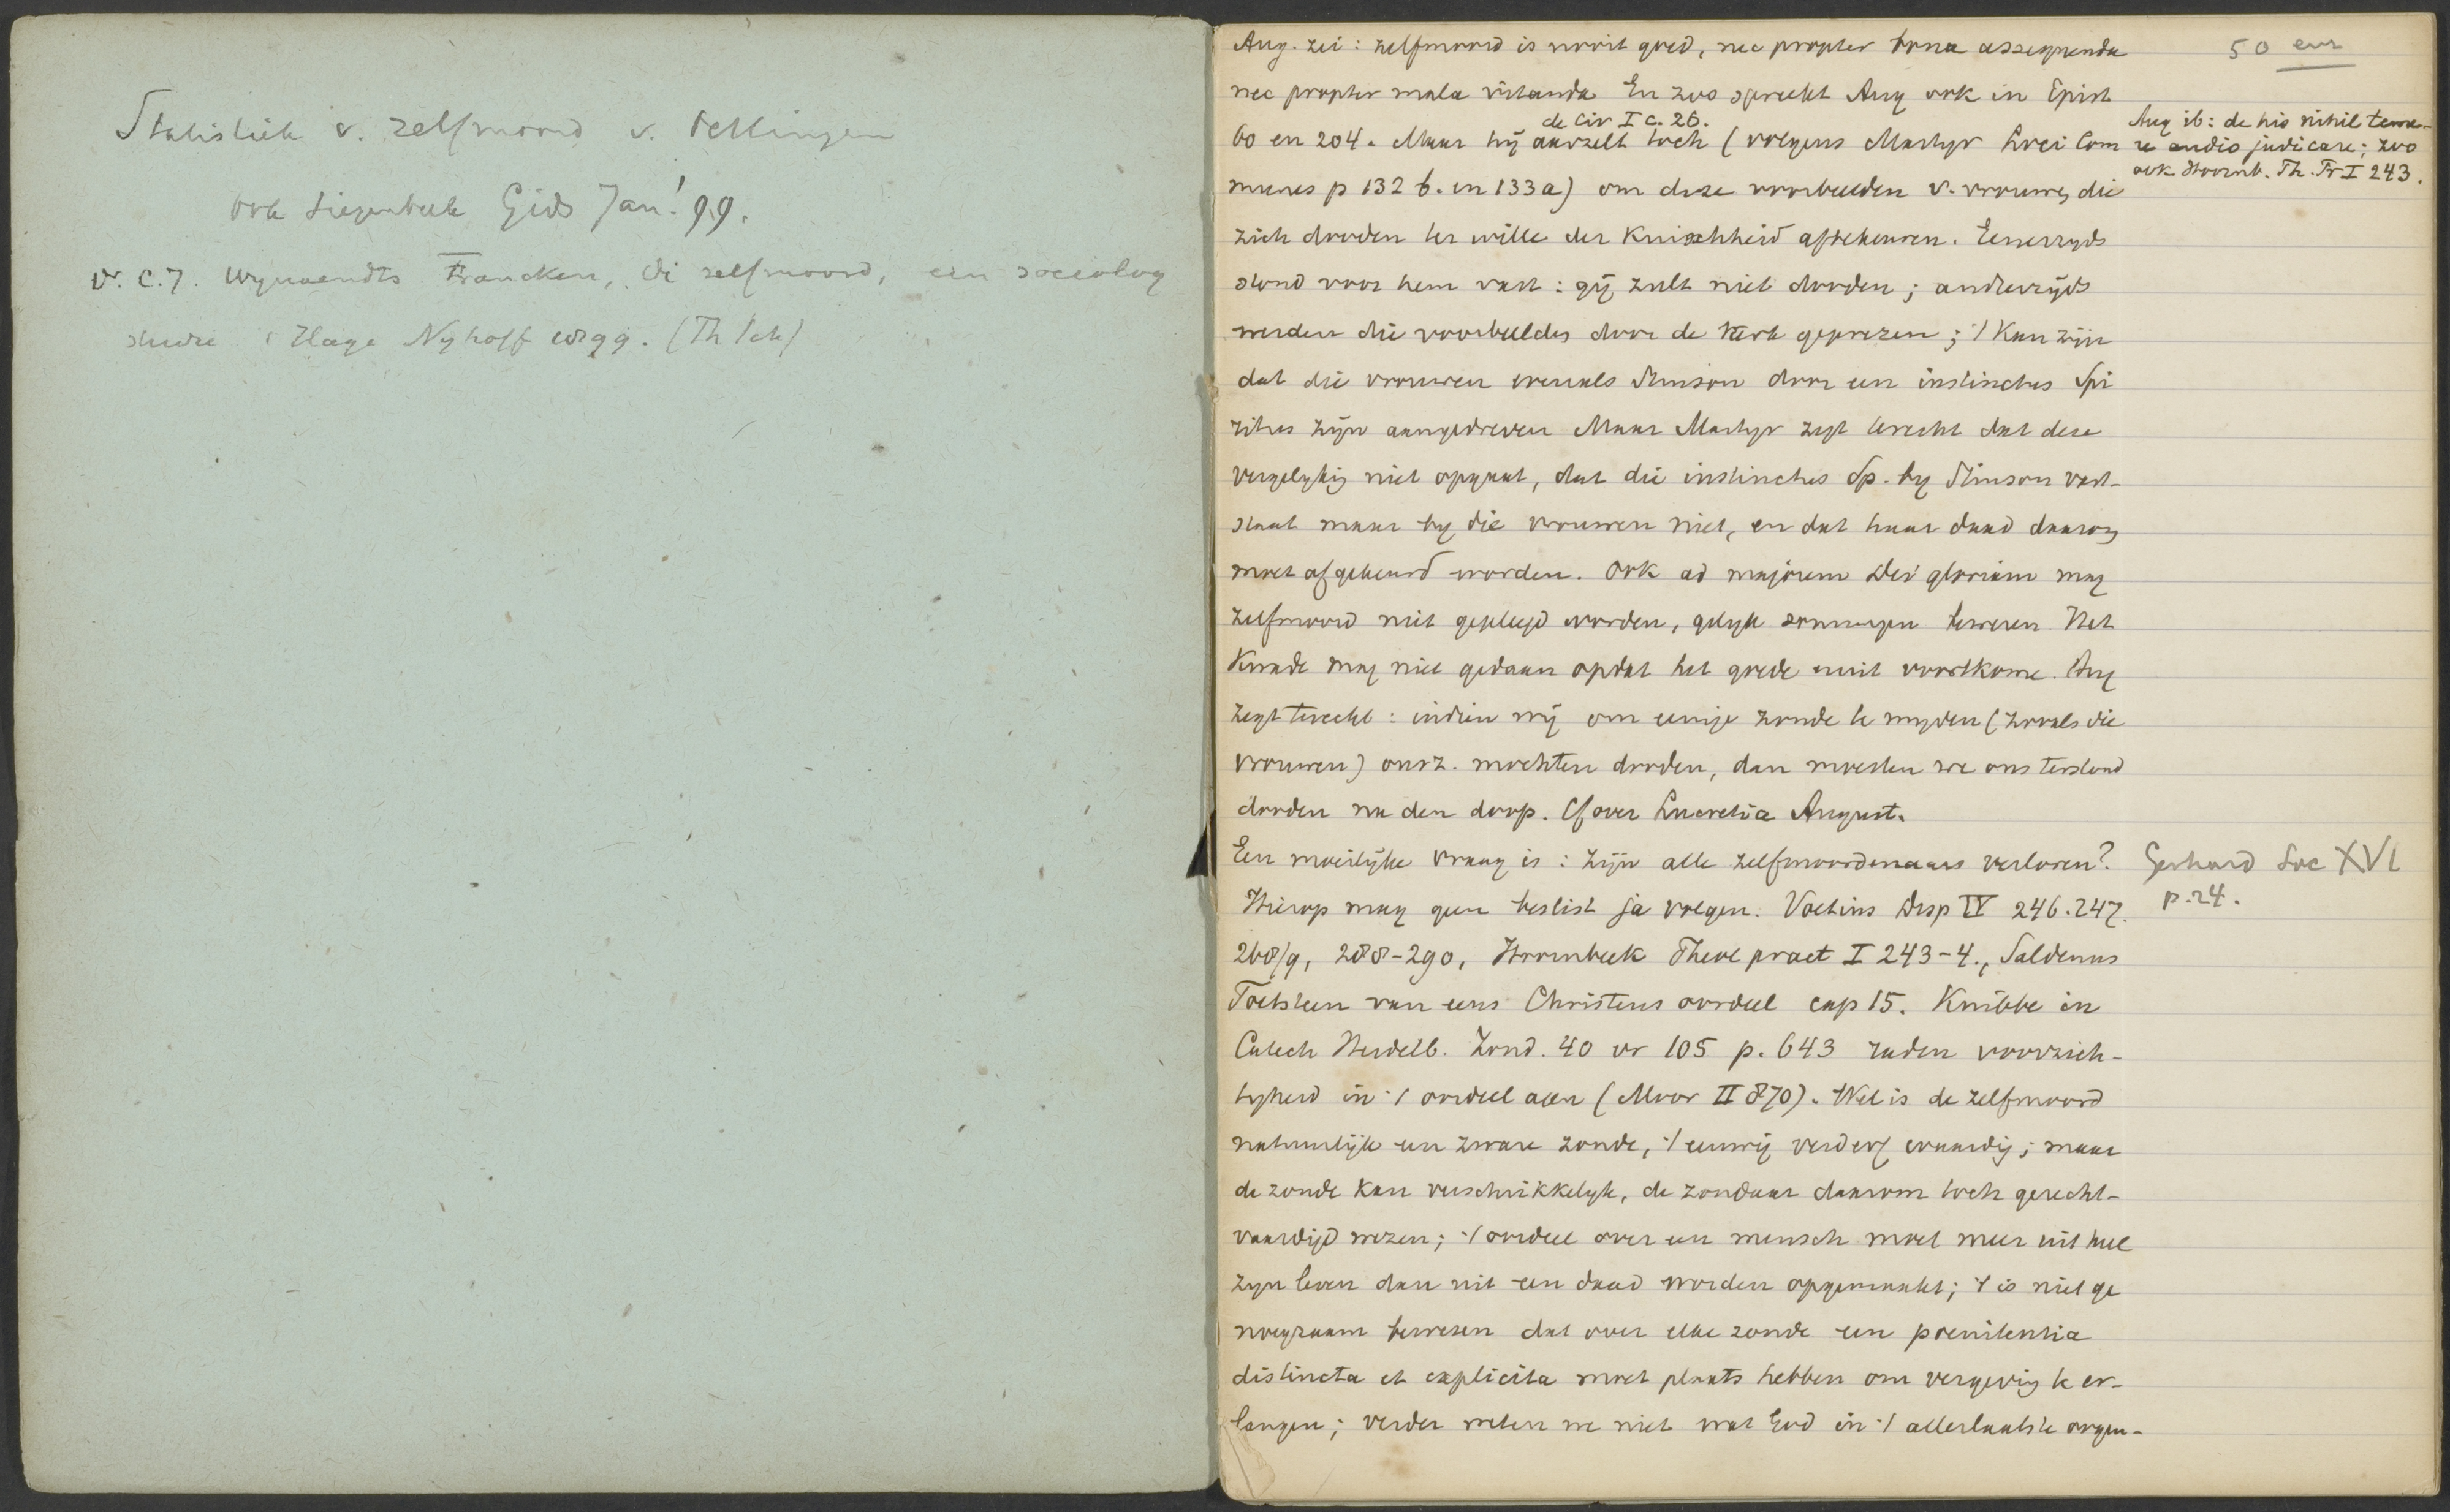 Statistiek v. zelfmoord v. Oettingen
ook Siegenbeek Gids Jan! 99.
Dr. C.J. Wynaendts Francken, De zelfmoord, een sociolog
studie 's Hage Nyhoff 1899. (Th Tch)
Aug. zei: zelfmoord is nooit goed, nec propter bona assequenda
50 eeuw
nec propter mala vitanda En zoo spreekt Aug ook in Epist
de Civ I c. 26.
60 en 204. Maar hij aarzelt toch (volgens Martyr Loci Com
Aug ib: de his nihil teme-
re audio judicare; zoo
ook Hoornb. Th. Pr I 243.
munes p 132 b. en 133a) om deze voorbeelden v. vrouwen, die
zich dooden ter wille der kuischheid aftekeuren. Eenerzyds
stond voor hem vast: gij zult niet dooden; anderzijds
werden die voorbeelden door de kerk geprezen; 't kan zijn
dat die vrouwen evenals Simson door een instinctus Spi
ritus zijn aangedreven Maar Martyr zegt terecht dat deze
vergelyking niet opgaat, dat die instinctus Sp. by Simson vast-
staat maar by die vrouwen niet, en dat haar daad daarom
moet afgekeurd worden. Ook ad majorem Dei gloriam mag
zelfmoord niet gepleegd worden, gelyk sommigen beweren Het
kwade mag niet gedaan opdat het goede eruit voortkome. Aug
zegt terecht: indien wij om eenige zonde te myden (zooals die
vrouwen) onsz. mochten dooden, dan moesten we ons terstond
dooden na den doop. Cf over Lucretia August.
Een moeilijke vraag is: zijn alle zelfmoordenaars verloren?
Gerhard Loc XVI
p. 24.
Hierop mag geen beslist ja volgen. Voetius Disp IV 246. 247.
268/9, 288-290, Hoornbeek Theol pract I 243-4., Saldenus
Toetssteen van eens Christens oordeel cap 15. Knibbe in
Catech Heidelb. Zond. 40 vr 105 p. 643 raden voorzich-
tigheid in 't oordeel aan (Moor II 870). Wel is de zelfmoord
natuurlijk een zware zonde, 't eeuwig verderf waardig; maar
de zonde kan verschrikkelyk, de zondaar daarom toch gerecht-
vaardigd wezen; 't oordeel over een mensch moet meer uit heel
zyn leven dan uit een daad worden opgemaakt; 't is niet ge
noegzaam bewezen dat over elke zonde een poenitentia
distincta et explicita moet plaats hebben om vergeving te er-
langen; verder weten we niet wat God in 't allerlaatste oogen-